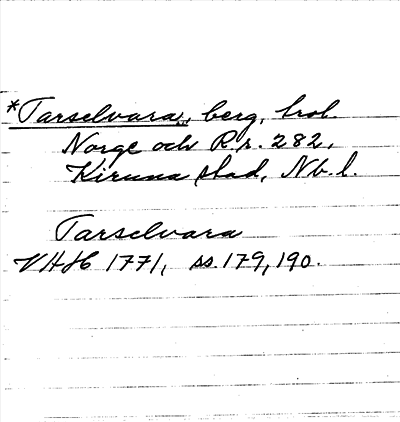 *Tarselvara, berg, trol.
Norge och R.r. 282,
Kiruna stad, Nb. l.
Tarselvara
VHH 1771, ss. 179, 190.